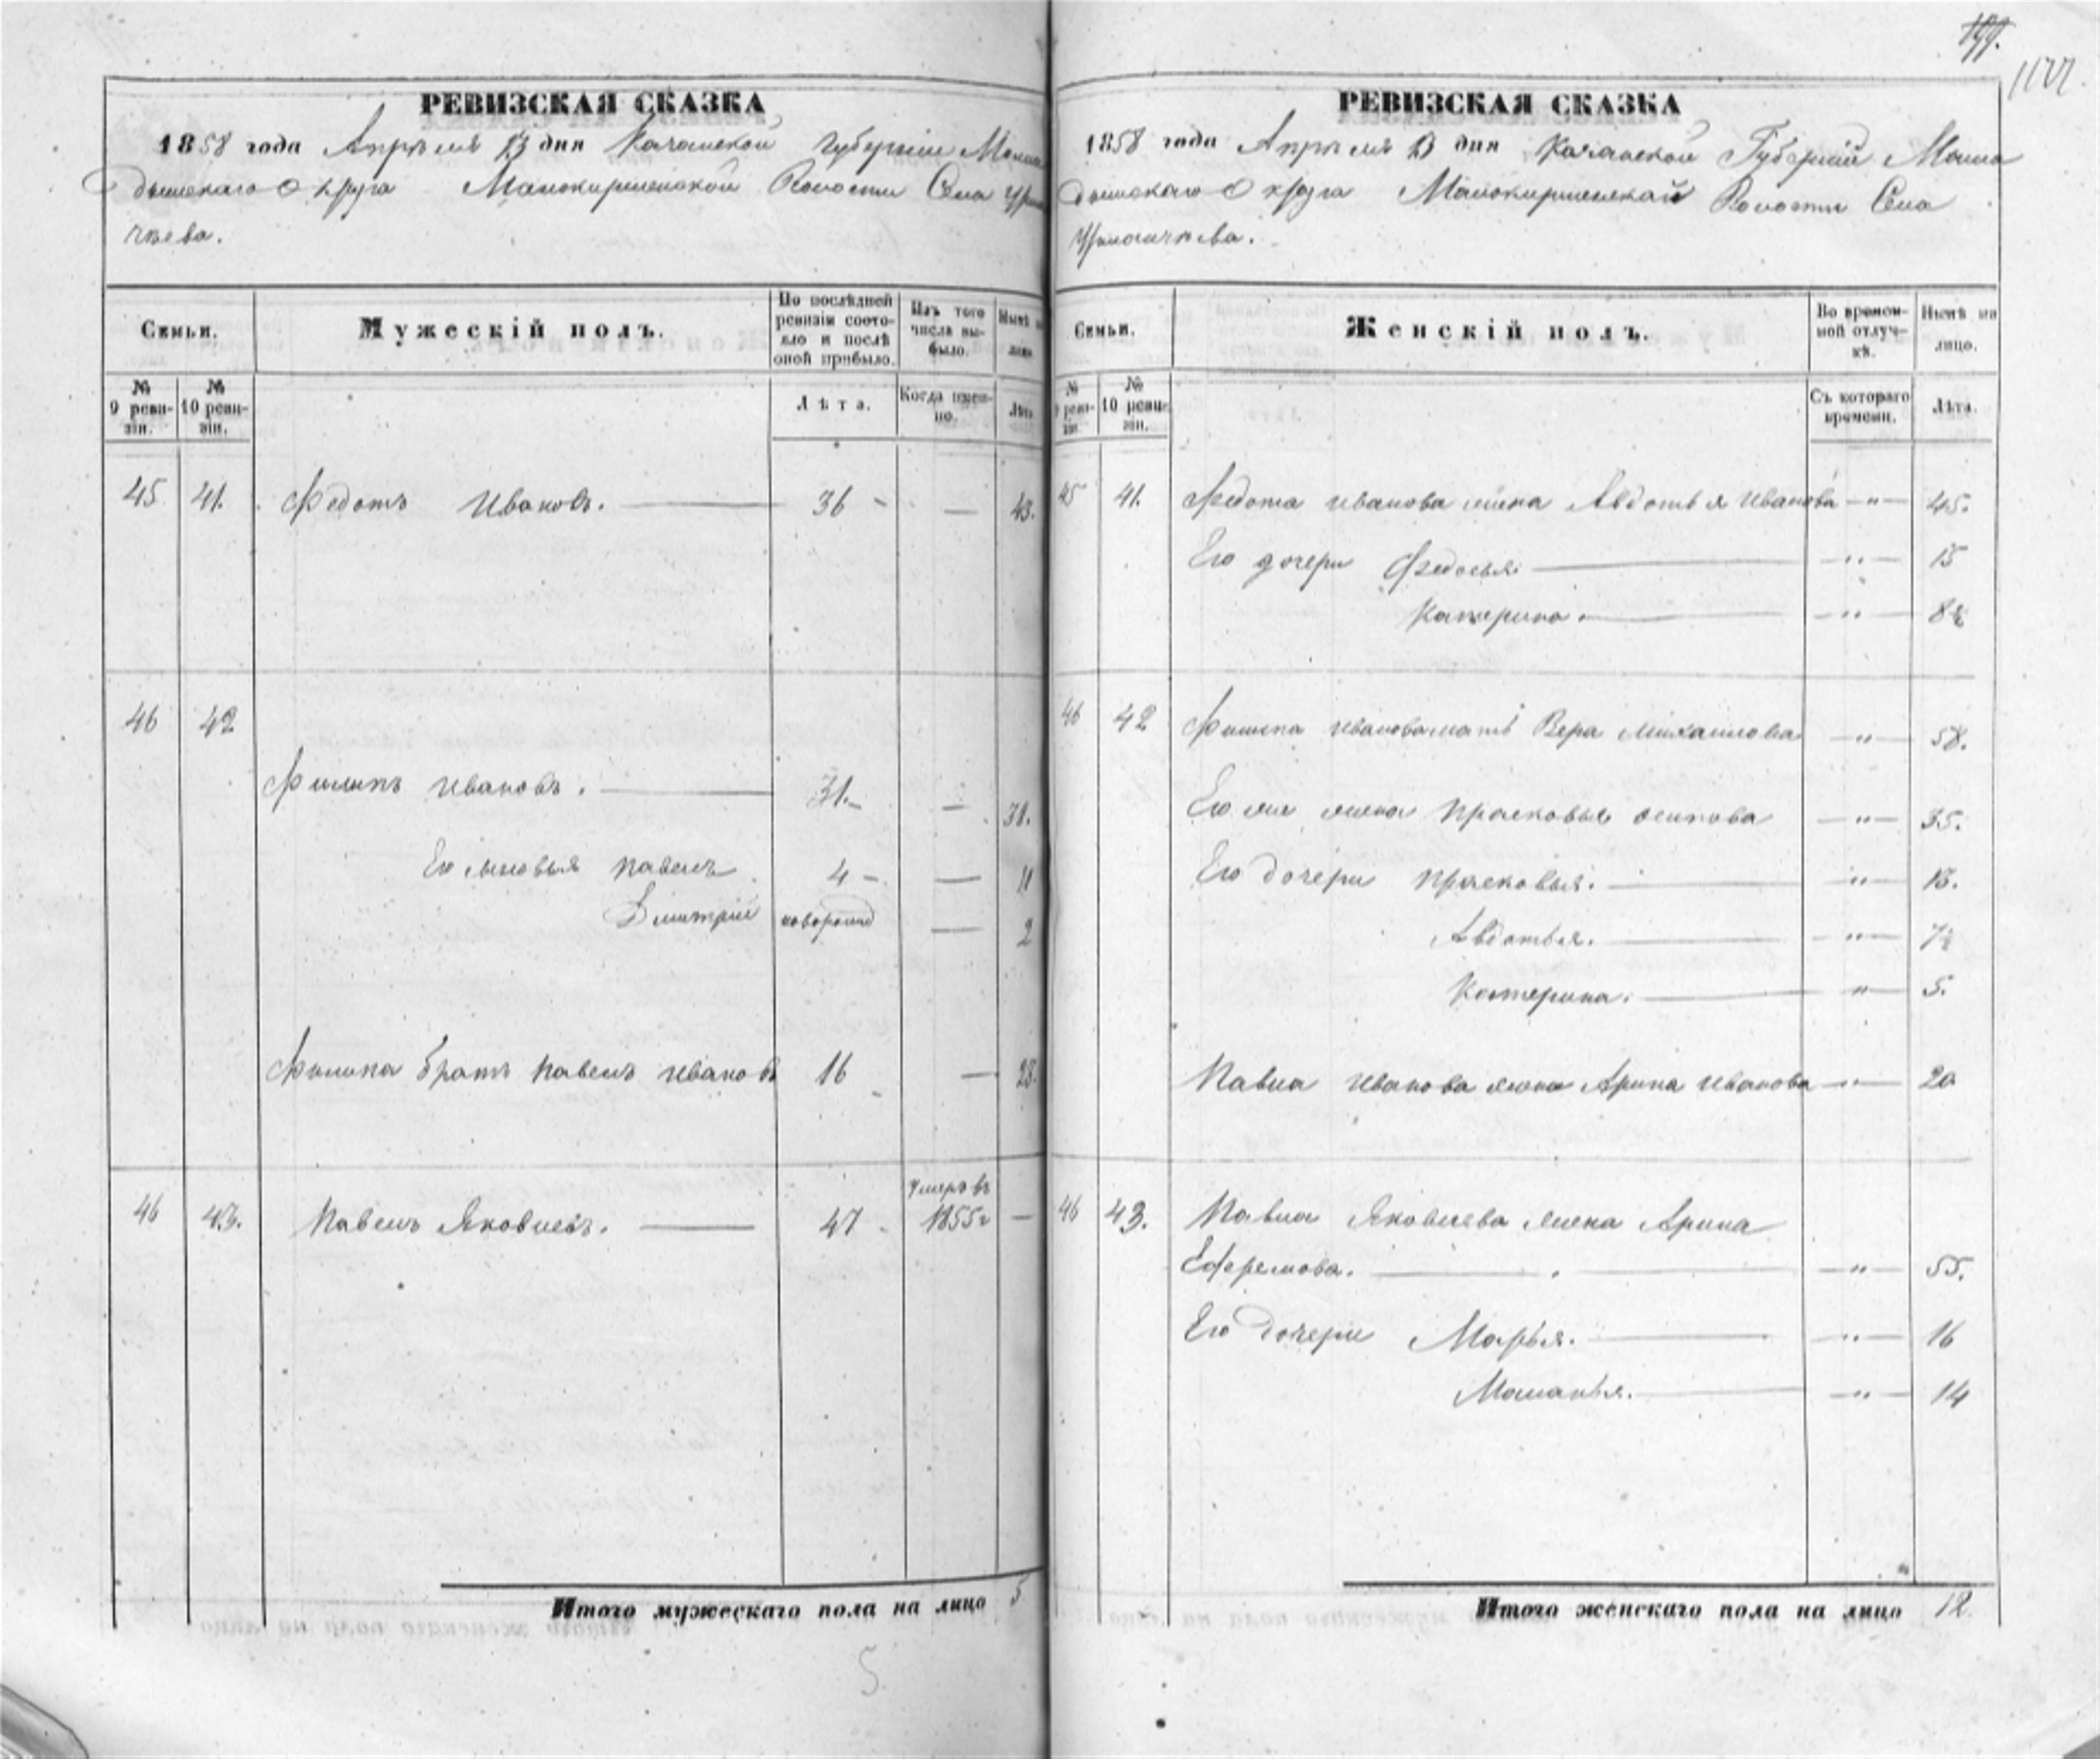 177.
1177.
РЕВИЗСКАЯ СКАЗКА
1858 года Апреля 13 дня Казанской Губернии Мама
дышскаго Округа Малокирменской Волости Села Ур
чкева.
Семьи.
Мужескій полъ.
По послѣдней ревизіи состояло и послѣ оной прибыло.
Изъ того числа выбыло.
Нынѣ на лицо.
№ 9 ревизіи.
№ 10 ревизіи.
Лѣта.
Когда именно.
Лѣта
45 41. Федотъ Ивановъ. 36 — 43.
46 42
Филипъ Ивановъ. 31. — 38.
Его сыновья Павелъ 4 — 11
Дмитрій новорожд — 2
Филипа братъ Павелъ Ивановъ 16 — 23.
46 43. Павелъ Яковлевъ. 47 Умеръ въ 1855г —
Итого мужескаго пола на лицо 5
5
РЕВИЗСКАЯ СКАЗКА
1858 года Апреля 13 дня Казанской Губерніи Мама
дышскаго Округа Малокирменской Волости Села
Семьи.
Женскій полъ.
Во временной отлучкѣ.
Нынѣ на лицо.
№ 9 ревизіи
№ 10 ревизіи.
Съ котораго времени.
Лѣта.
45 41. Федота Иванова жена Авдотья Иванова —"— 45.
Его дочери Федосья. —"— 15
Катерина. —"— 8½
46 42 Филипа Иванова мать Вера Михаилова —"— 58.
Его же жена Прасковья Осипова —"— 35.
Его дочери Прасковья. —"— 13.
Авдотья. —"— 7½
Катерина. —"— 5.
Павла Иванова жена Арина Иванова —"— 20
46 43. Павла Яковлева жена Арина
Ефремова. —"— 55.
Его дочери Марья. —"— 16
Маланья. —"— 14
Итого женскаго пола на лицо 12.